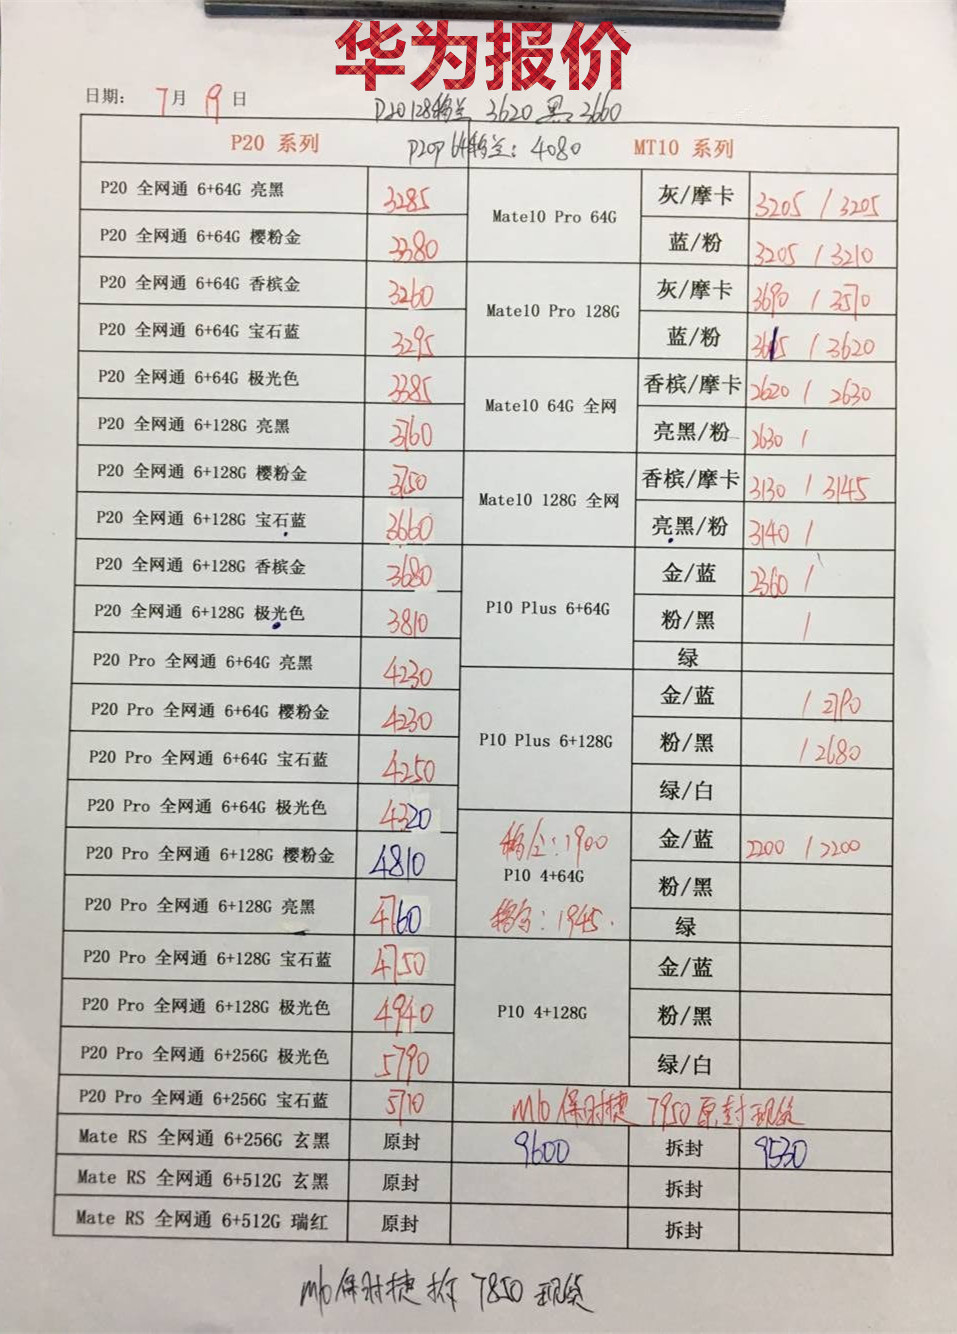 华为报价
日期: 7月19日
P20 128移兰 3620 黑:3660
P20 系列 P20P 64移兰: 4080 MT10 系列
P20 全网通 6+64G 亮黑 3285
Mate10 Pro 64G 灰/摩卡 3205 / 3205
P20 全网通 6+64G 樱粉金 3380
蓝/粉 3205 / 3210
P20 全网通 6+64G 香槟金 3260
Mate10 Pro 128G 灰/摩卡 3690 / 3570
P20 全网通 6+64G 宝石蓝 3295
蓝/粉 3615 / 3620
P20 全网通 6+64G 极光色 3385
Mate10 64G 全网 香槟/摩卡 2620 / 2630
P20 全网通 6+128G 亮黑 3760
亮黑/粉 2630 /
P20 全网通 6+128G 樱粉金 3750
Mate10 128G 全网 香槟/摩卡 3130 / 3145
P20 全网通 6+128G 宝石蓝 3660
亮黑/粉 3140 /
P20 全网通 6+128G 香槟金 3680
P10 Plus 6+64G 金/蓝 2360 /
P20 全网通 6+128G 极光色 3810
粉/黑 /
绿
P20 Pro 全网通 6+64G 亮黑 4230
P10 Plus 6+128G 金/蓝 / 2790
P20 Pro 全网通 6+64G 樱粉金 4230
粉/黑 / 2680
P20 Pro 全网通 6+64G 宝石蓝 4250
绿/白
P20 Pro 全网通 6+64G 极光色 4320
移/全:1900
P10 4+64G 金/蓝 2200 / 2200
P20 Pro 全网通 6+128G 樱粉金 4810
粉/黑
P20 Pro 全网通 6+128G 亮黑 4760
1945.
绿
P20 Pro 全网通 6+128G 宝石蓝 4750
P10 4+128G 金/蓝
P20 Pro 全网通 6+128G 极光色 4940
粉/黑
P20 Pro 全网通 6+256G 极光色 5790
绿/白
P20 Pro 全网通 6+256G 宝石蓝 5710
M10 保时捷 7950 原封现货
Mate RS 全网通 6+256G 玄黑 原封 9600 拆封 9530
Mate RS 全网通 6+512G 玄黑 原封 拆封
Mate RS 全网通 6+512G 瑞红 原封 拆封
M10 保时捷 拆 7850 现货